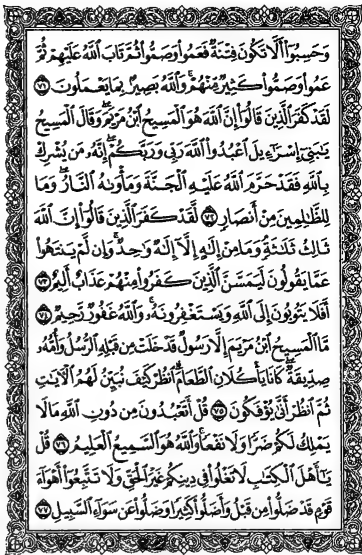 وَحَسِبُوٓاْ أَلَّا تَكُونَ فِتْنَةٌ فَعَمُواْ وَصَمُّواْ ثُمَّ تَابَ ٱللَّهُ عَلَيْهِمْ ثُمَّ
عَمُواْ وَصَمُّواْ كَثِيرٌ مِّنْهُمْ ۚ وَٱللَّهُ بَصِيرٌۢ بِمَا يَعْمَلُونَ ٧١
لَقَدْ كَفَرَ ٱلَّذِينَ قَالُوٓاْ إِنَّ ٱللَّهَ هُوَ ٱلْمَسِيحُ ٱبْنُ مَرْيَمَ ۖ وَقَالَ ٱلْمَسِيحُ
يَٰبَنِىٓ إِسْرَٰٓءِيلَ ٱعْبُدُواْ ٱللَّهَ رَبِّى وَرَبَّكُمْ ۖ إِنَّهُۥ مَن يُشْرِكْ
بِٱللَّهِ فَقَدْ حَرَّمَ ٱللَّهُ عَلَيْهِ ٱلْجَنَّةَ وَمَأْوَىٰهُ ٱلنَّارُ ۖ وَمَا
لِلظَّٰلِمِينَ مِنْ أَنصَارٍ ٧٢ لَّقَدْ كَفَرَ ٱلَّذِينَ قَالُوٓاْ إِنَّ ٱللَّهَ
ثَالِثُ ثَلَٰثَةٍ ۘ وَمَا مِنْ إِلَٰهٍ إِلَّآ إِلَٰهٌ وَٰحِدٌ ۚ وَإِن لَّمْ يَنتَهُواْ
عَمَّا يَقُولُونَ لَيَمَسَّنَّ ٱلَّذِينَ كَفَرُواْ مِنْهُمْ عَذَابٌ أَلِيمٌ ٧٣
أَفَلَا يَتُوبُونَ إِلَى ٱللَّهِ وَيَسْتَغْفِرُونَهُۥ ۚ وَٱللَّهُ غَفُورٌ رَّحِيمٌ ٧٤
مَّا ٱلْمَسِيحُ ٱبْنُ مَرْيَمَ إِلَّا رَسُولٌ قَدْ خَلَتْ مِن قَبْلِهِ ٱلرُّسُلُ وَأُمُّهُۥ
صِدِّيقَةٌ ۖ كَانَا يَأْكُلَانِ ٱلطَّعَامَ ۗ ٱنظُرْ كَيْفَ نُبَيِّنُ لَهُمُ ٱلْءَايَٰتِ
ثُمَّ ٱنظُرْ أَنَّىٰ يُؤْفَكُونَ ٧٥ قُلْ أَتَعْبُدُونَ مِن دُونِ ٱللَّهِ مَا لَا
يَمْلِكُ لَكُمْ ضَرًّا وَلَا نَفْعًا ۚ وَٱللَّهُ هُوَ ٱلسَّمِيعُ ٱلْعَلِيمُ ٧٦ قُلْ
يَٰٓأَهْلَ ٱلْكِتَٰبِ لَا تَغْلُواْ فِى دِينِكُمْ غَيْرَ ٱلْحَقِّ وَلَا تَتَّبِعُوٓاْ أَهْوَآءَ
قَوْمٍ قَدْ ضَلُّواْ مِن قَبْلُ وَأَضَلُّواْ كَثِيرًا وَضَلُّواْ عَن سَوَآءِ ٱلسَّبِيلِ ٧٧